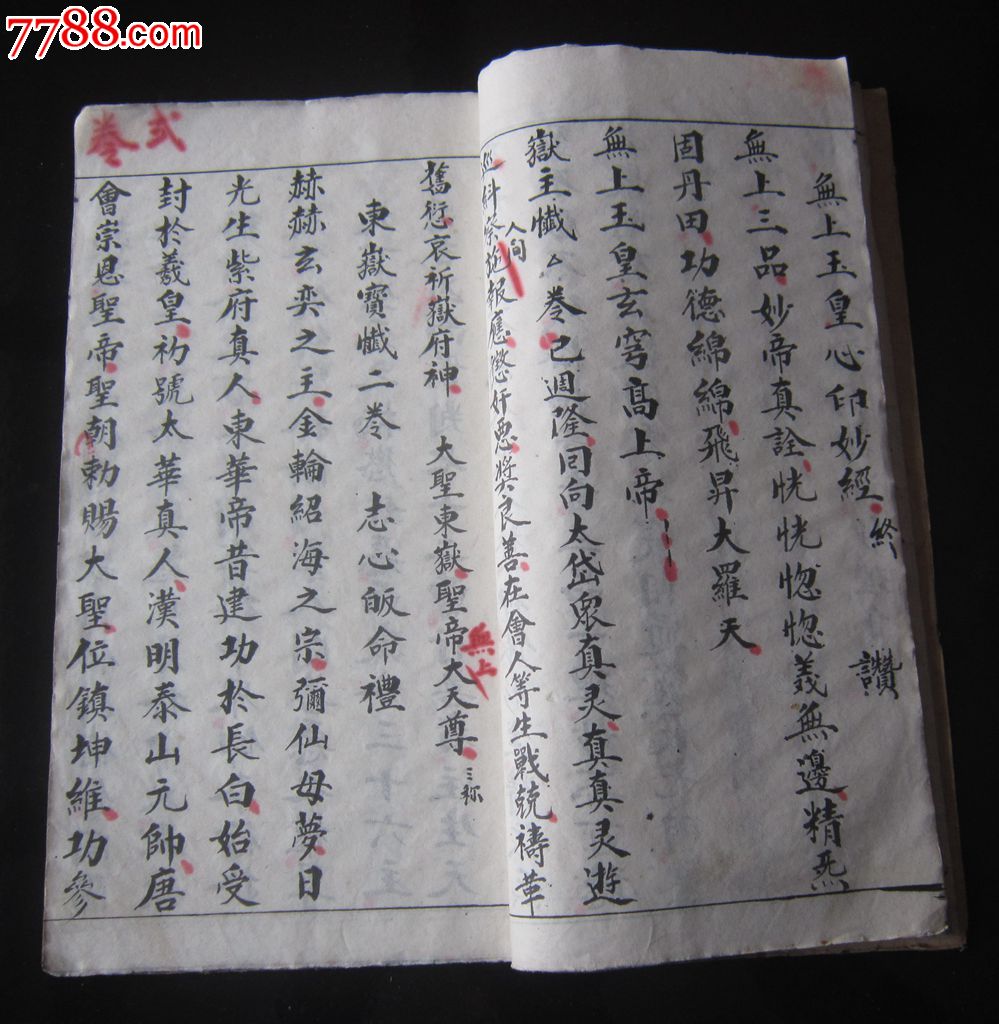 7788.com
無上玉皇心印妙經 終
讚
無上三品妙帝真詮恍恍惚惚義無邊精炁
固丹田功德綿綿飛昇大羅天
無上玉皇玄穹高上帝
嶽主懺 卷已週隆囘向太岱眾真灵真真灵遊
人间
科祭施報應懲奸惡奬良善在會人等生戰兢禱華
舊愆哀祈嶽府神 大聖東嶽聖帝大天尊 三称
無上
東嶽寶懺二卷 志心皈命禮
赫赫玄奕之主金輪紹海之宗彌仙母夢日
光生紫府真人東華帝昔建功於長白始受
封於羲皇初號太華真人漢明泰山元帥唐
會崇恩聖帝聖朝勅賜大聖位鎮坤維功參
弍卷